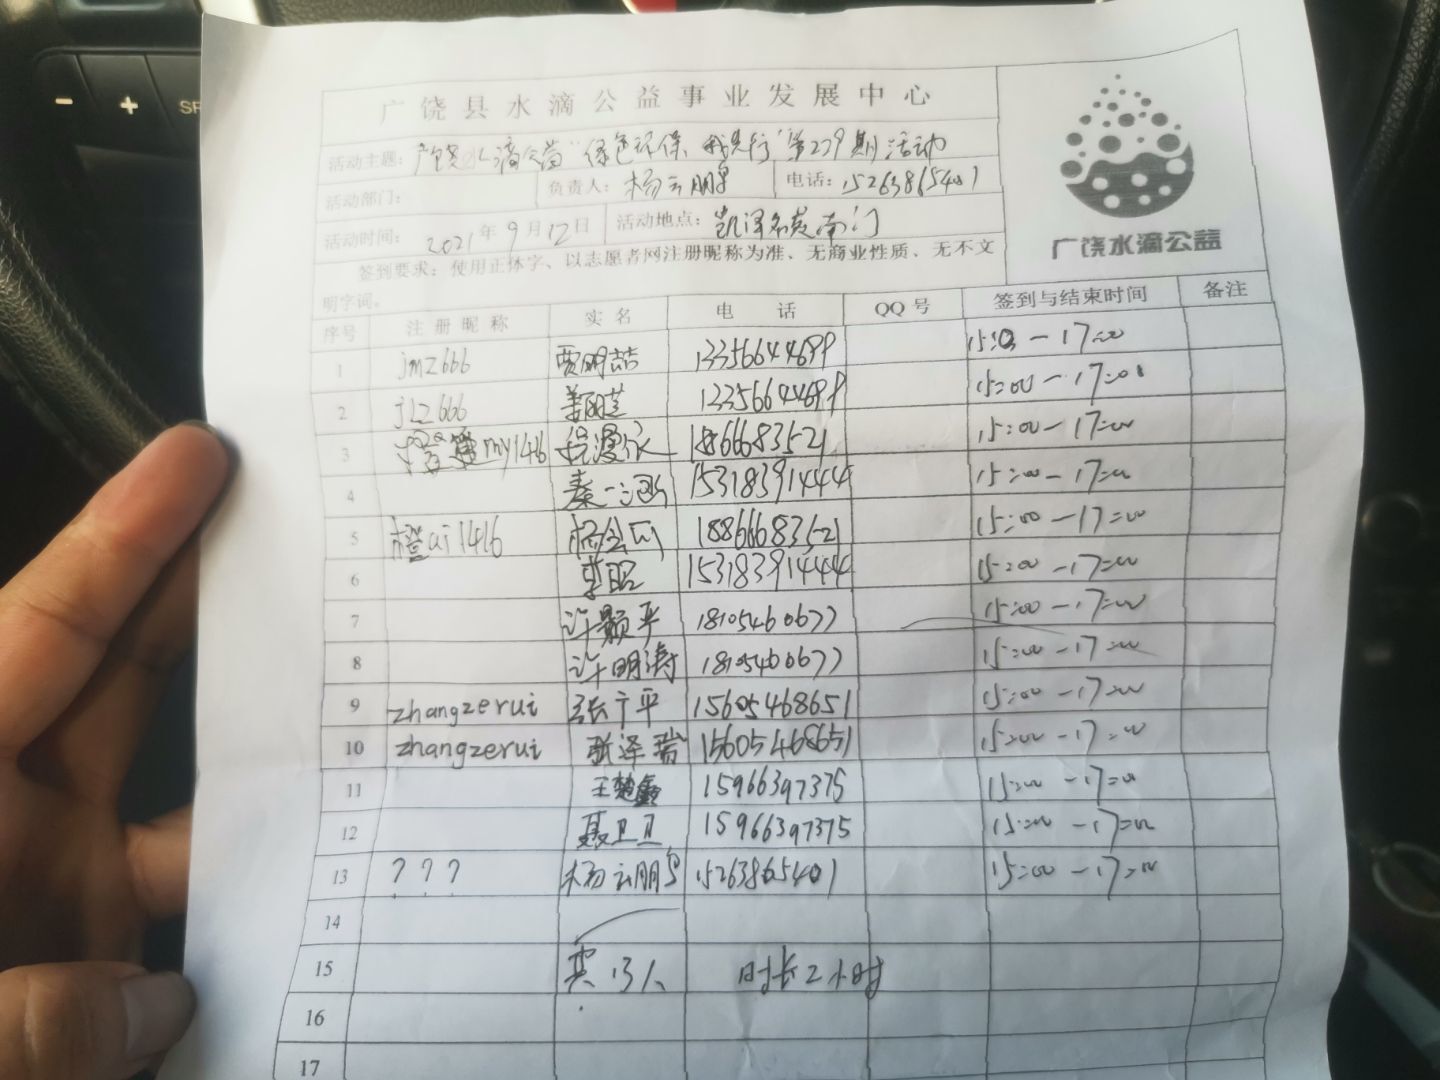 - + SP
广饶县水滴公益事业发展中心
活动主题: 广饶水滴公益"绿色环保、我先行"第229期活动
活动部门: 负责人: 杨云鹏 电话: 15263865401
活动时间: 2021年9月12日 活动地点: 凯泽名苑南门
签到要求: 使用正体字、以志愿者网注册昵称为准、无商业性质、无不文
明字词。
广饶水滴公益
序号 注册昵称 实名 电话 QQ号 签到与结束时间 备注
1 jmz666 贾明喆 13356644699 15:00-17:00
2 jlz666 13356644699 15:00-17:00
3 my1416 1866683521 15:00-17:00
4 秦一 15318391444 15:00-17:00
5 橙ai1416 18866683521 15:00-17:00
6 15318391444 15:00-17:00
7 许颢平 18105460677 15:00-17:00
8 许明涛 18105460677 15:00-17:00
9 zhangzerui 张广平 15605468651 15:00-17:00
10 zhangzerui 张泽瑞 15605468651 15:00-17:00
11 王楚鑫 15966397375 15:00-17:00
12 聂卫卫 15966397375 15:00-17:00
13 ??? 杨云鹏 15263865401 15:00-17:00
14
15 共13人 时长2小时
16
17